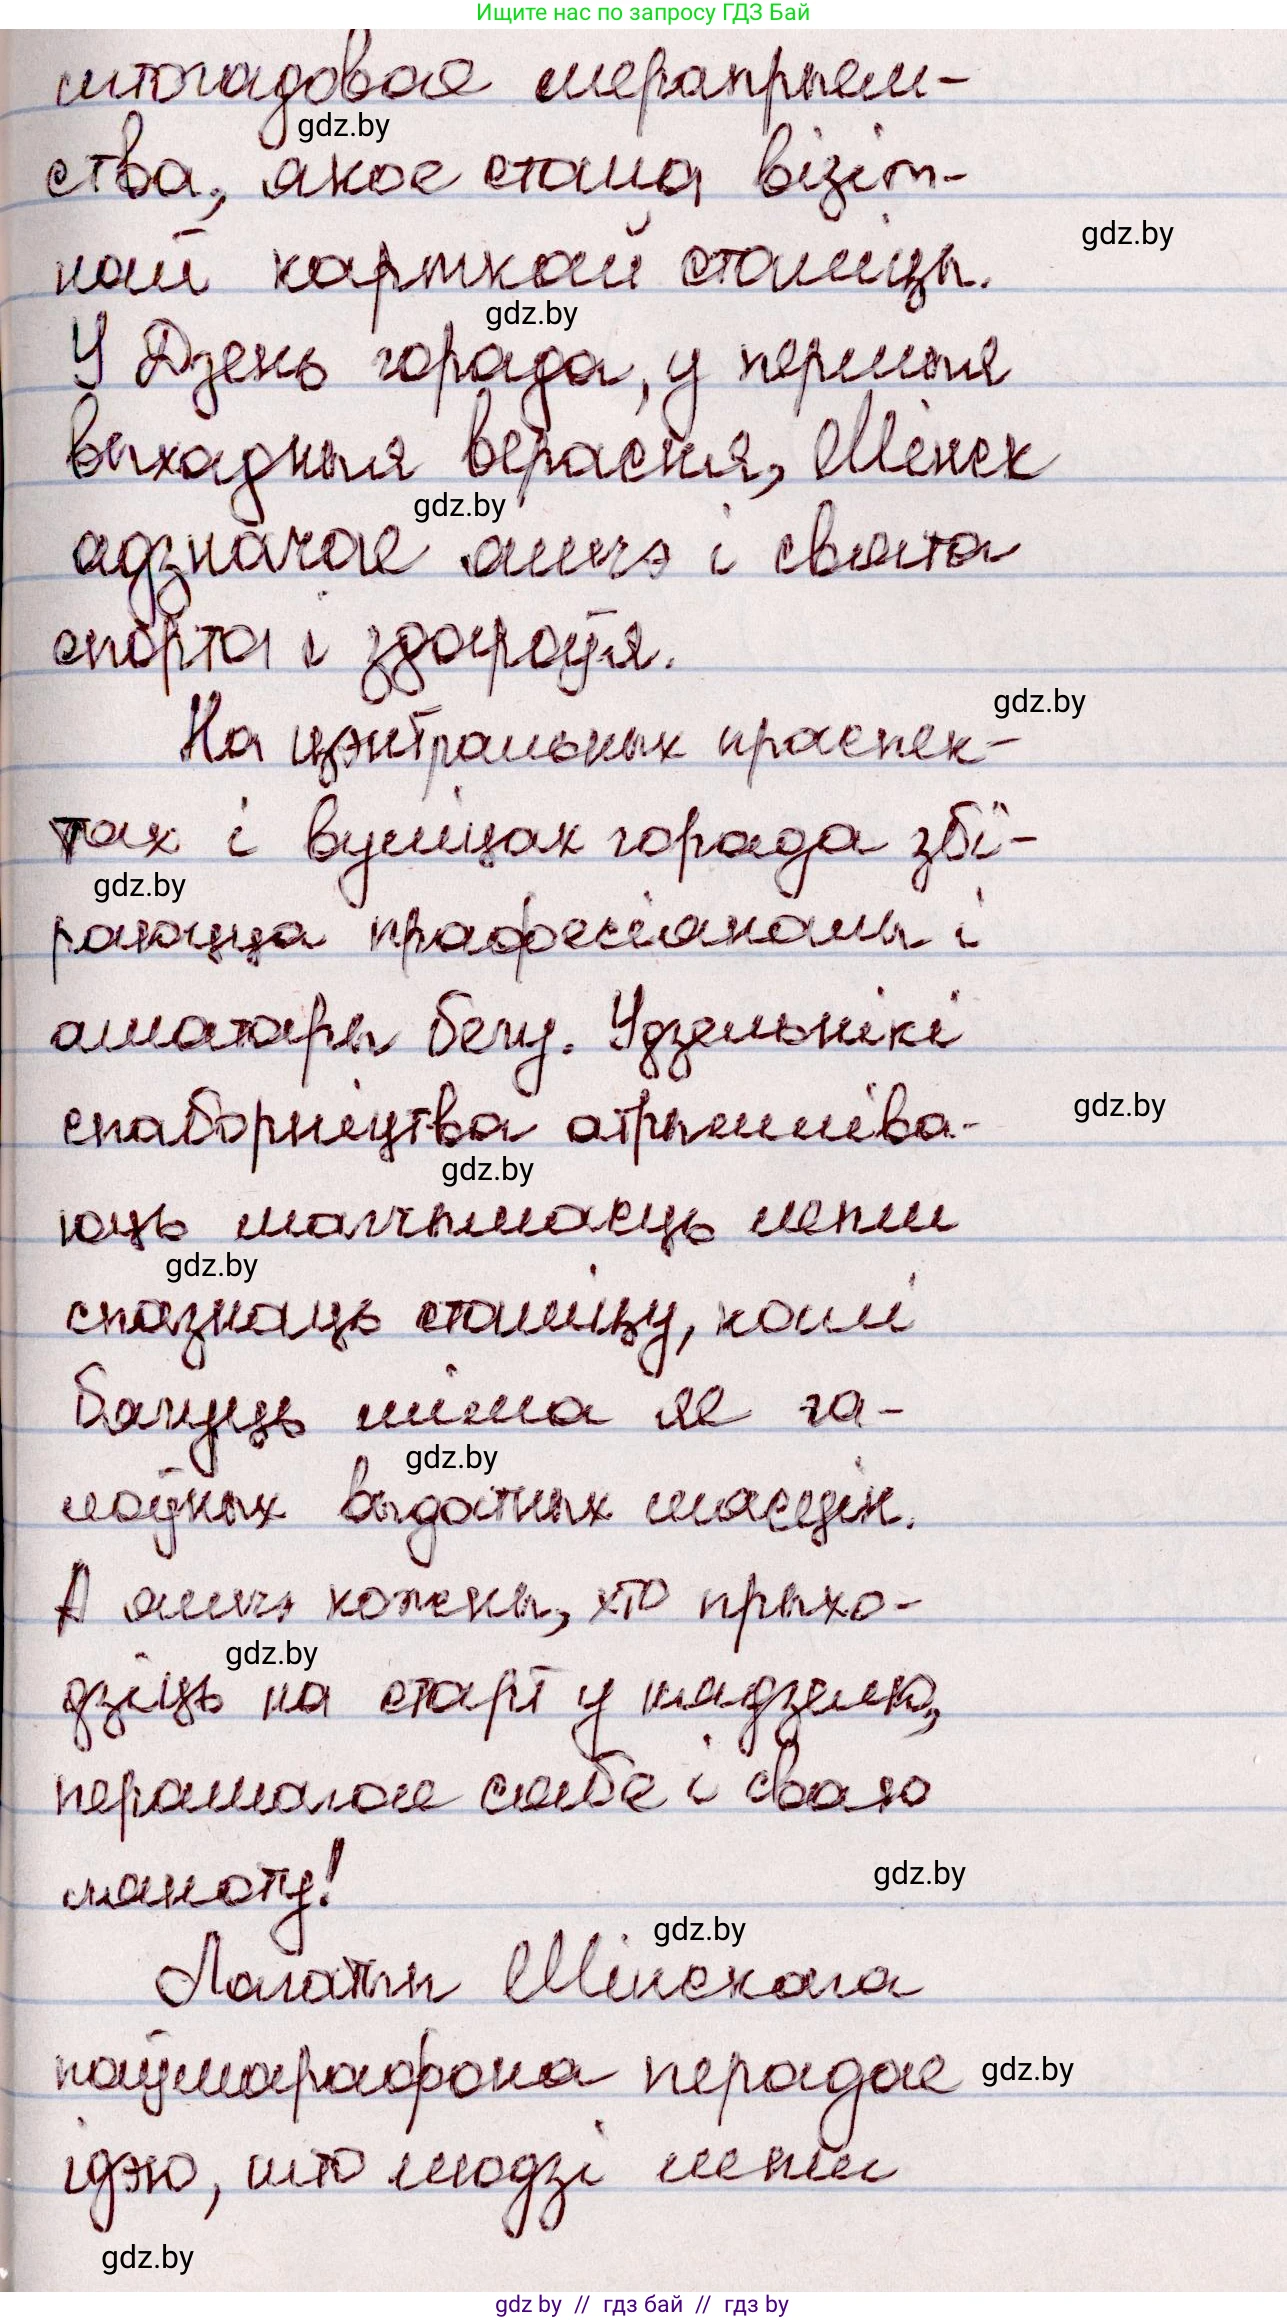 Ищите нас по запросу ГДЗ Бай
штогадовае мерапрыем-
gdz.by
ства, якое стала візіт-
gdz.by
най карткай сталіцы.
gdz.by
У Дзень горада, у першыя
выхадныя верасня, Мінск
gdz.by
адзначае яшчэ і свята
спорта і здароўя.
gdz.by
На цэнтральных праспек-
тах і вуліцах горада збі-
gdz.by
раюцца прафесіяналы і
аматары бегу. Удзельнікі
спаборніцтва атрымліва-
gdz.by
gdz.by
юць магчымасць лепш
gdz.by
спазнаць сталіцу, калі
бягуць міма яе га-
gdz.by
лоўных выдатных мясцін.
А яшчэ кожны, хто прыхо-
gdz.by
дзіць на старт у нядзелю,
перамагае сябе і сваю
ляноту!
gdz.by
gdz.by
Лагатып Мінскага
паўмарафона перадае
gdz.by
ідэю, што людзі лепш
gdz.by
gdz by // гдз бай // гдз by